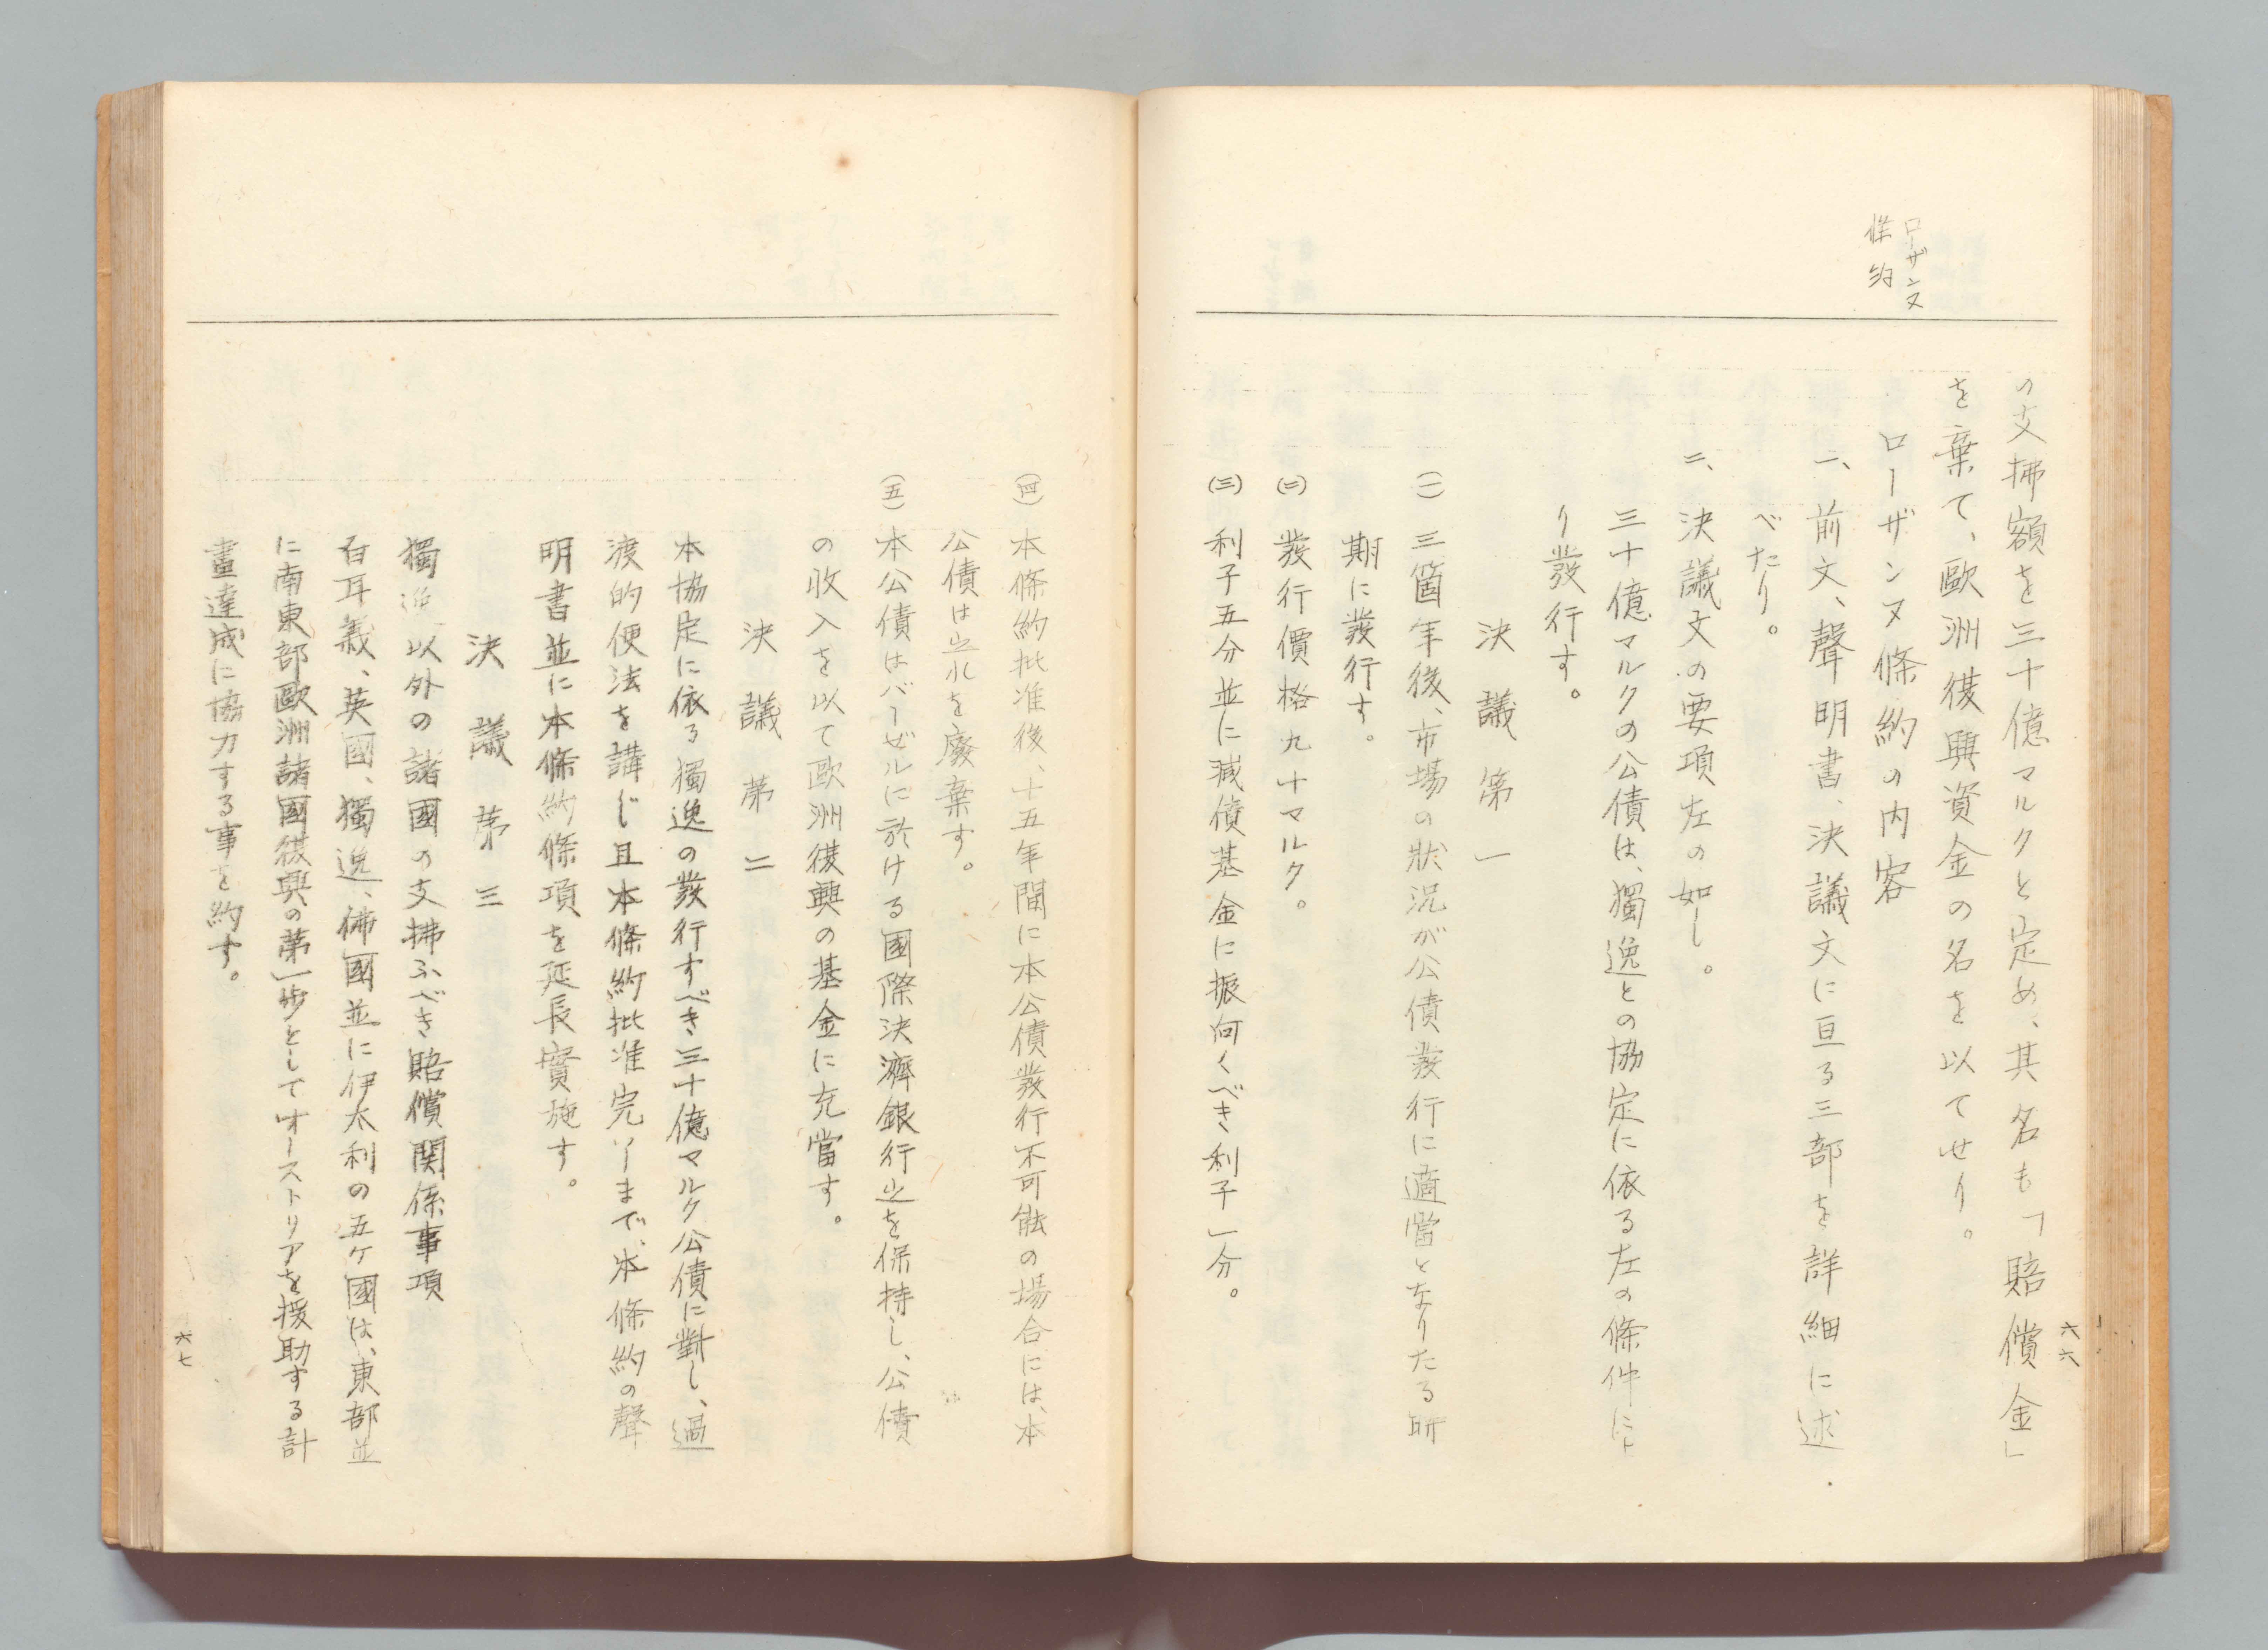 ローザンヌ
條約
の支拂額を三十億マルクと定め、其名も「賠償金」
を棄て、歐洲復興資金の名を以てせり。
ローザンヌ條約の内容
一、前文、聲明書、決議文に亘る三部を詳細に述
べたり。
二、決議文の要項左の如し。
三十億マルクの公債は、獨逸との協定に依る左の條件によ
り發行す。
決議第一
(一)三箇年後、市場の狀況が公債發行に適當となりたる時
期に發行す。
(二)發行價格九十マルク。
(三)利子五分並に減債基金に振向くべき利子一分。
六六
(四)本條約批准後、十五年間に本公債發行不可能の場合には、本
公債は之れを廢棄す。
(五)本公債はバーゼルに於ける國際決濟銀行之を保持し、公債
の收入を以て歐洲復興の基金に充當す。
決議第二
本協定に依る獨逸の發行すべき三十億マルク公債に對し、過
渡的便法を講じ且本條約批准完了まで、本條約の聲
明書並に本條約條項を延長實施す。
決議第三
獨逸以外の諸國の支拂ふべき賠償関係事項
白耳義、英國、獨逸、佛國並に伊太利の五ケ國は、東部並
に南東部歐洲諸國復興の第一歩としてオーストリアを援助する計
畫達成に協力する事を約す。
六七